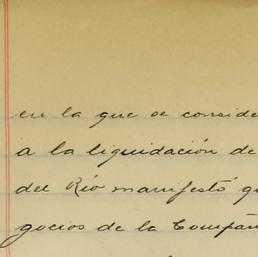 en la que se conside
a la liquidación de
del Río manifestó q
gocios de la Compañ